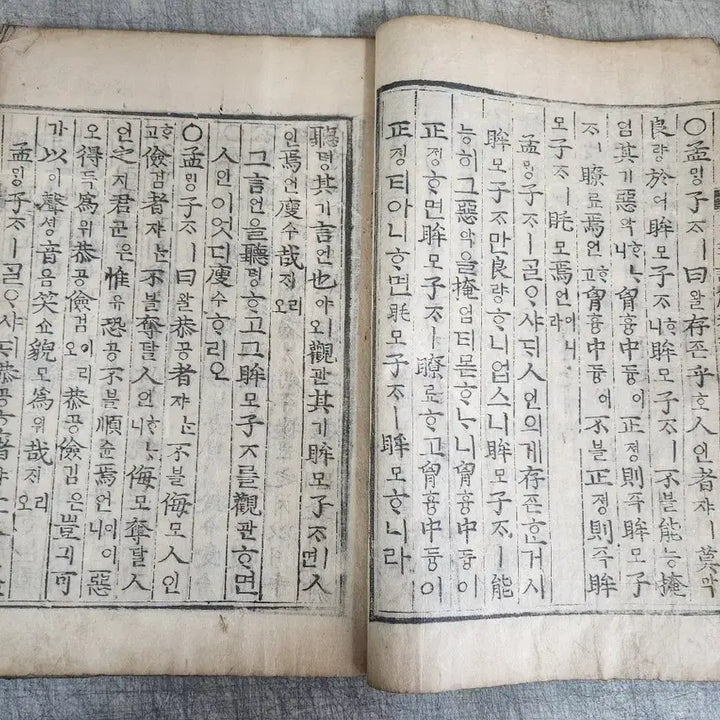 ○孟ᄆᆡᆼ子ᄌᆞㅣ曰왈存존乎호人인者쟈ㅣ莫막
良량於어眸모子ᄌᆞᄒᆞ니眸모子ᄌᆞㅣ不블能능掩
엄其기惡악ᄒᆞᄂᆞ니胷흉中듕이正졍則즉眸모子
ᄌᆞㅣ瞭료焉언ᄒᆞ고胷흉中듕이不블正졍則즉眸
모子ᄌᆞㅣ眊모焉언이니라
孟ᄆᆡᆼ子ᄌᆞㅣᄀᆞᆯᄋᆞ샤ᄃᆡ人인의게存존ᄒᆞᆫ거시
眸모子ᄌᆞ만良량ᄒᆞ니업스니眸모子ᄌᆞㅣ能
능히그惡악을掩엄티몯ᄒᆞᄂᆞ니胷흉中듕이
正졍ᄒᆞ면眸모子ᄌᆞㅣ瞭료ᄒᆞ고胷흉中듕이
正졍티아니ᄒᆞ면眊모子ᄌᆞㅣ眸모ᄒᆞ니라
聽텽其기言언也야오觀관其기眸모子ᄌᆞㅣ면人
인焉언廋수哉ᄌᆡ리오
그言언을聽텽ᄒᆞ고그眸모子ᄌᆞ를觀관ᄒᆞ면
人인이엇디廋수ᄒᆞ리오
○孟ᄆᆡᆼ子ᄌᆞㅣ曰왈恭공者쟈ᄂᆞᆫ不블侮모人인
ᄒᆞ고儉검者쟈ᄂᆞᆫ不블奪탈人인ᄒᆞᄂᆞ니侮모奪탈人
인之지君군은惟유恐공不블順슌焉언이어니惡
오得득爲위恭공儉검이리오恭공儉검은豈긔可
가以이聲셩音음笑쇼貌모爲위哉ᄌᆡ리오
孟ᄆᆡᆼ子ᄌᆞㅣᄀᆞᆯᄋᆞ샤ᄃᆡ恭공ᄒᆞᆫ者쟈ᄂᆞᆫ